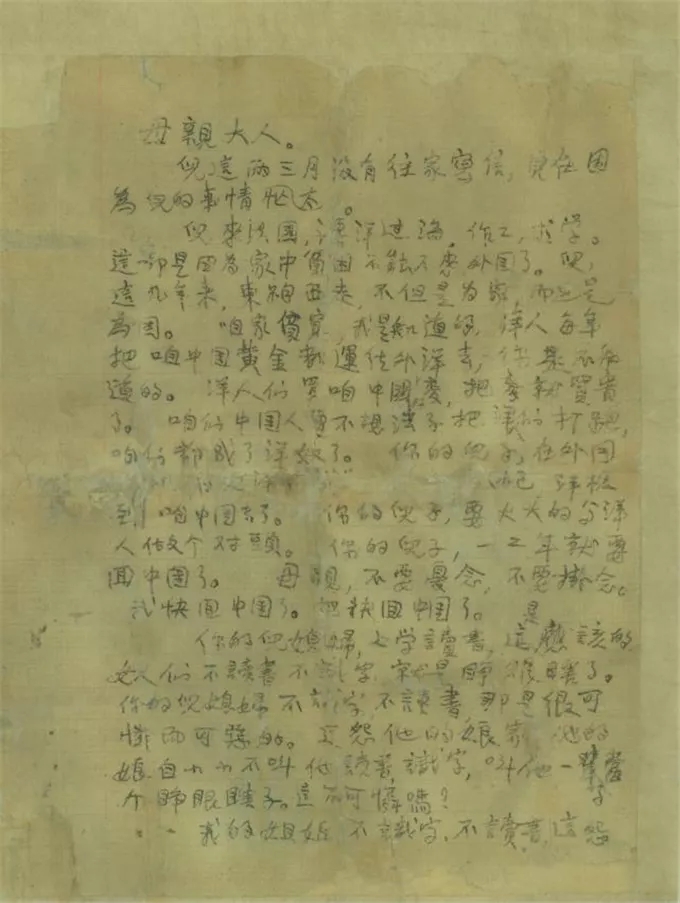 母親大人。
兒這兩三月没有往家寫信，實在因
為兒的事情忙
兒來法國，漂洋过海。作工，求學。
這卻是因為家中貧困不能不來外国了。兒，
這九年來，東神西走，不但是为家，而
為国。咱家貧寒，我是知道的，洋人每年
把咱中国黄金都運往外洋去，你是不知
道的。洋人们買咱中國麥，把麥都買貴
了。咱们中国人要不想法子把洋打
咱们都成了洋奴了。你的兒子，在外国
洋
到咱中国去了。你的兒子，要大大的与洋
人做个对頭。你的兒子，一二年就要
回中国了。母親，不要憂念，不要掛念。
我快回中国了。把我回中国了。
你的兒媳婦，上学讀書，這是應該的
女人们不讀書不識字，就是睜眼瞎了。
你的兒媳婦不識字，不讀書，那是很可
憐而可惡的。只怨他的娘家，他的
娘自小小不叫他讀書識字，叫他一輩
个睁眼瞎子。這不可憐嗎？
我的姐姐不識字，不讀書，這怨